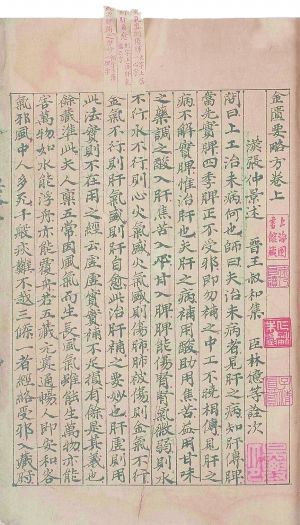 金匱要略方卷上
漢張仲景述 晉王叔和集 臣林億等詮次
問曰上工治未病何也師曰夫治未病者見肝之病知肝傳脾
當先實脾四季脾王不受邪即勿補之中工不曉相傳見肝之
病不解實脾惟治肝也夫肝之病補用酸助用焦苦益用甘味
之藥調之酸入肝焦苦入心甘入脾脾能傷腎腎氣微弱則水
不行水不行則心火氣盛則傷肺肺被傷則金氣不行
金氣不行則肝氣盛則肝自愈此治肝補脾之要妙也肝虛則用
此法實則不在用之經云虛虛實實補不足損有餘是其義也
餘藏準此夫人稟五常因風氣而生長風氣雖能生萬物亦能
害萬物如水能浮舟亦能覆舟若五藏元真通暢人即安和客
氣邪風中人多死千般疢難不越三條一者經絡受邪入藏府
上海圖
書館藏